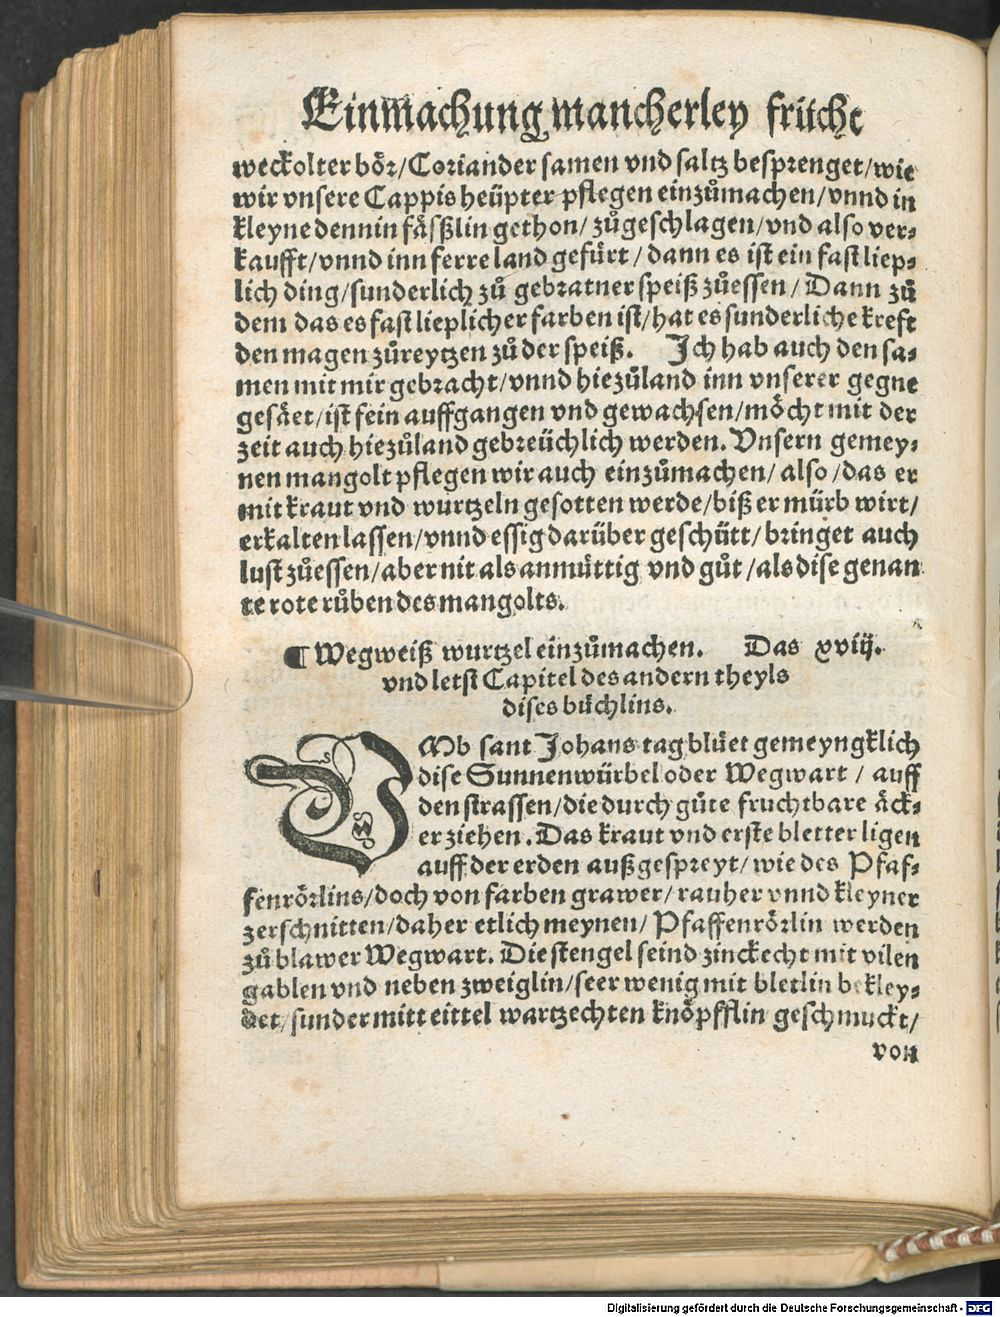 Einmachung mancherley frücht
weckolter bör/Coriander samen vnd saltz besprenget/wie
wir vnsere Cappis heüpter pflegen einzůmachen/vnnd in
kleyne dennin fäsßlin gethon/zůgeschlagen/vnd also ver⸗
kaufft/vnnd inn ferre land gefürt/dann es ist ein fast liep⸗
lich ding/sunderlich zů gebratner speiß zůessen/Dann zů
dem das es fast lieplicher farben ist/hat es sunderliche kreft
den magen zůreytzen zů der speiß. Ich hab auch den sa⸗
men mit mir gebracht/vnnd hiezůland inn vnserer gegne
gesäet/ist fein auffgangen vnd gewachsen/möcht mit der
zeit auch hiezůland gebreüchlich werden. Vnsern gemey⸗
nen mangolt pflegen wir auch einzůmachen/also/das er
mit kraut vnd wurtzeln gesotten werde/biß er mürb wirt/
erkalten lassen/vnnd essig darüber geschütt/bringet auch
lust zůessen/aber nit als anmüttig vnd gůt/als dise genan
te rote růben des mangolts.
¶ Wegweiß wurtzel einzůmachen. Das xviij.
vnd letst Capitel des andern theyls
dises büchlins.
VMb sant Johans tag blüet gemeyngklich
dise Sunnenwürbel oder Wegwart/auff
den strassen/die durch güte fruchtbare äck⸗
er ziehen. Das kraut vnd erste bletter ligen
auff der erden außgespreyt/wie des Pfaf⸗
fenrörlins/doch von farben grawer/rauher vnnd kleyner
zerschnitten/daher etlich meynen/Pfaffenrörlin werden
zů blawer Wegwart. Die stengel seind zinckecht mit vilen
gablen vnd neben zweiglin/seer wenig mit bletlin bekley⸗
det/sunder mitt eittel wartzechten knöpfflin geschmuckt/
von
Digitalisierung gefördert durch die Deutsche Forschungsgemeinschaft - DFG